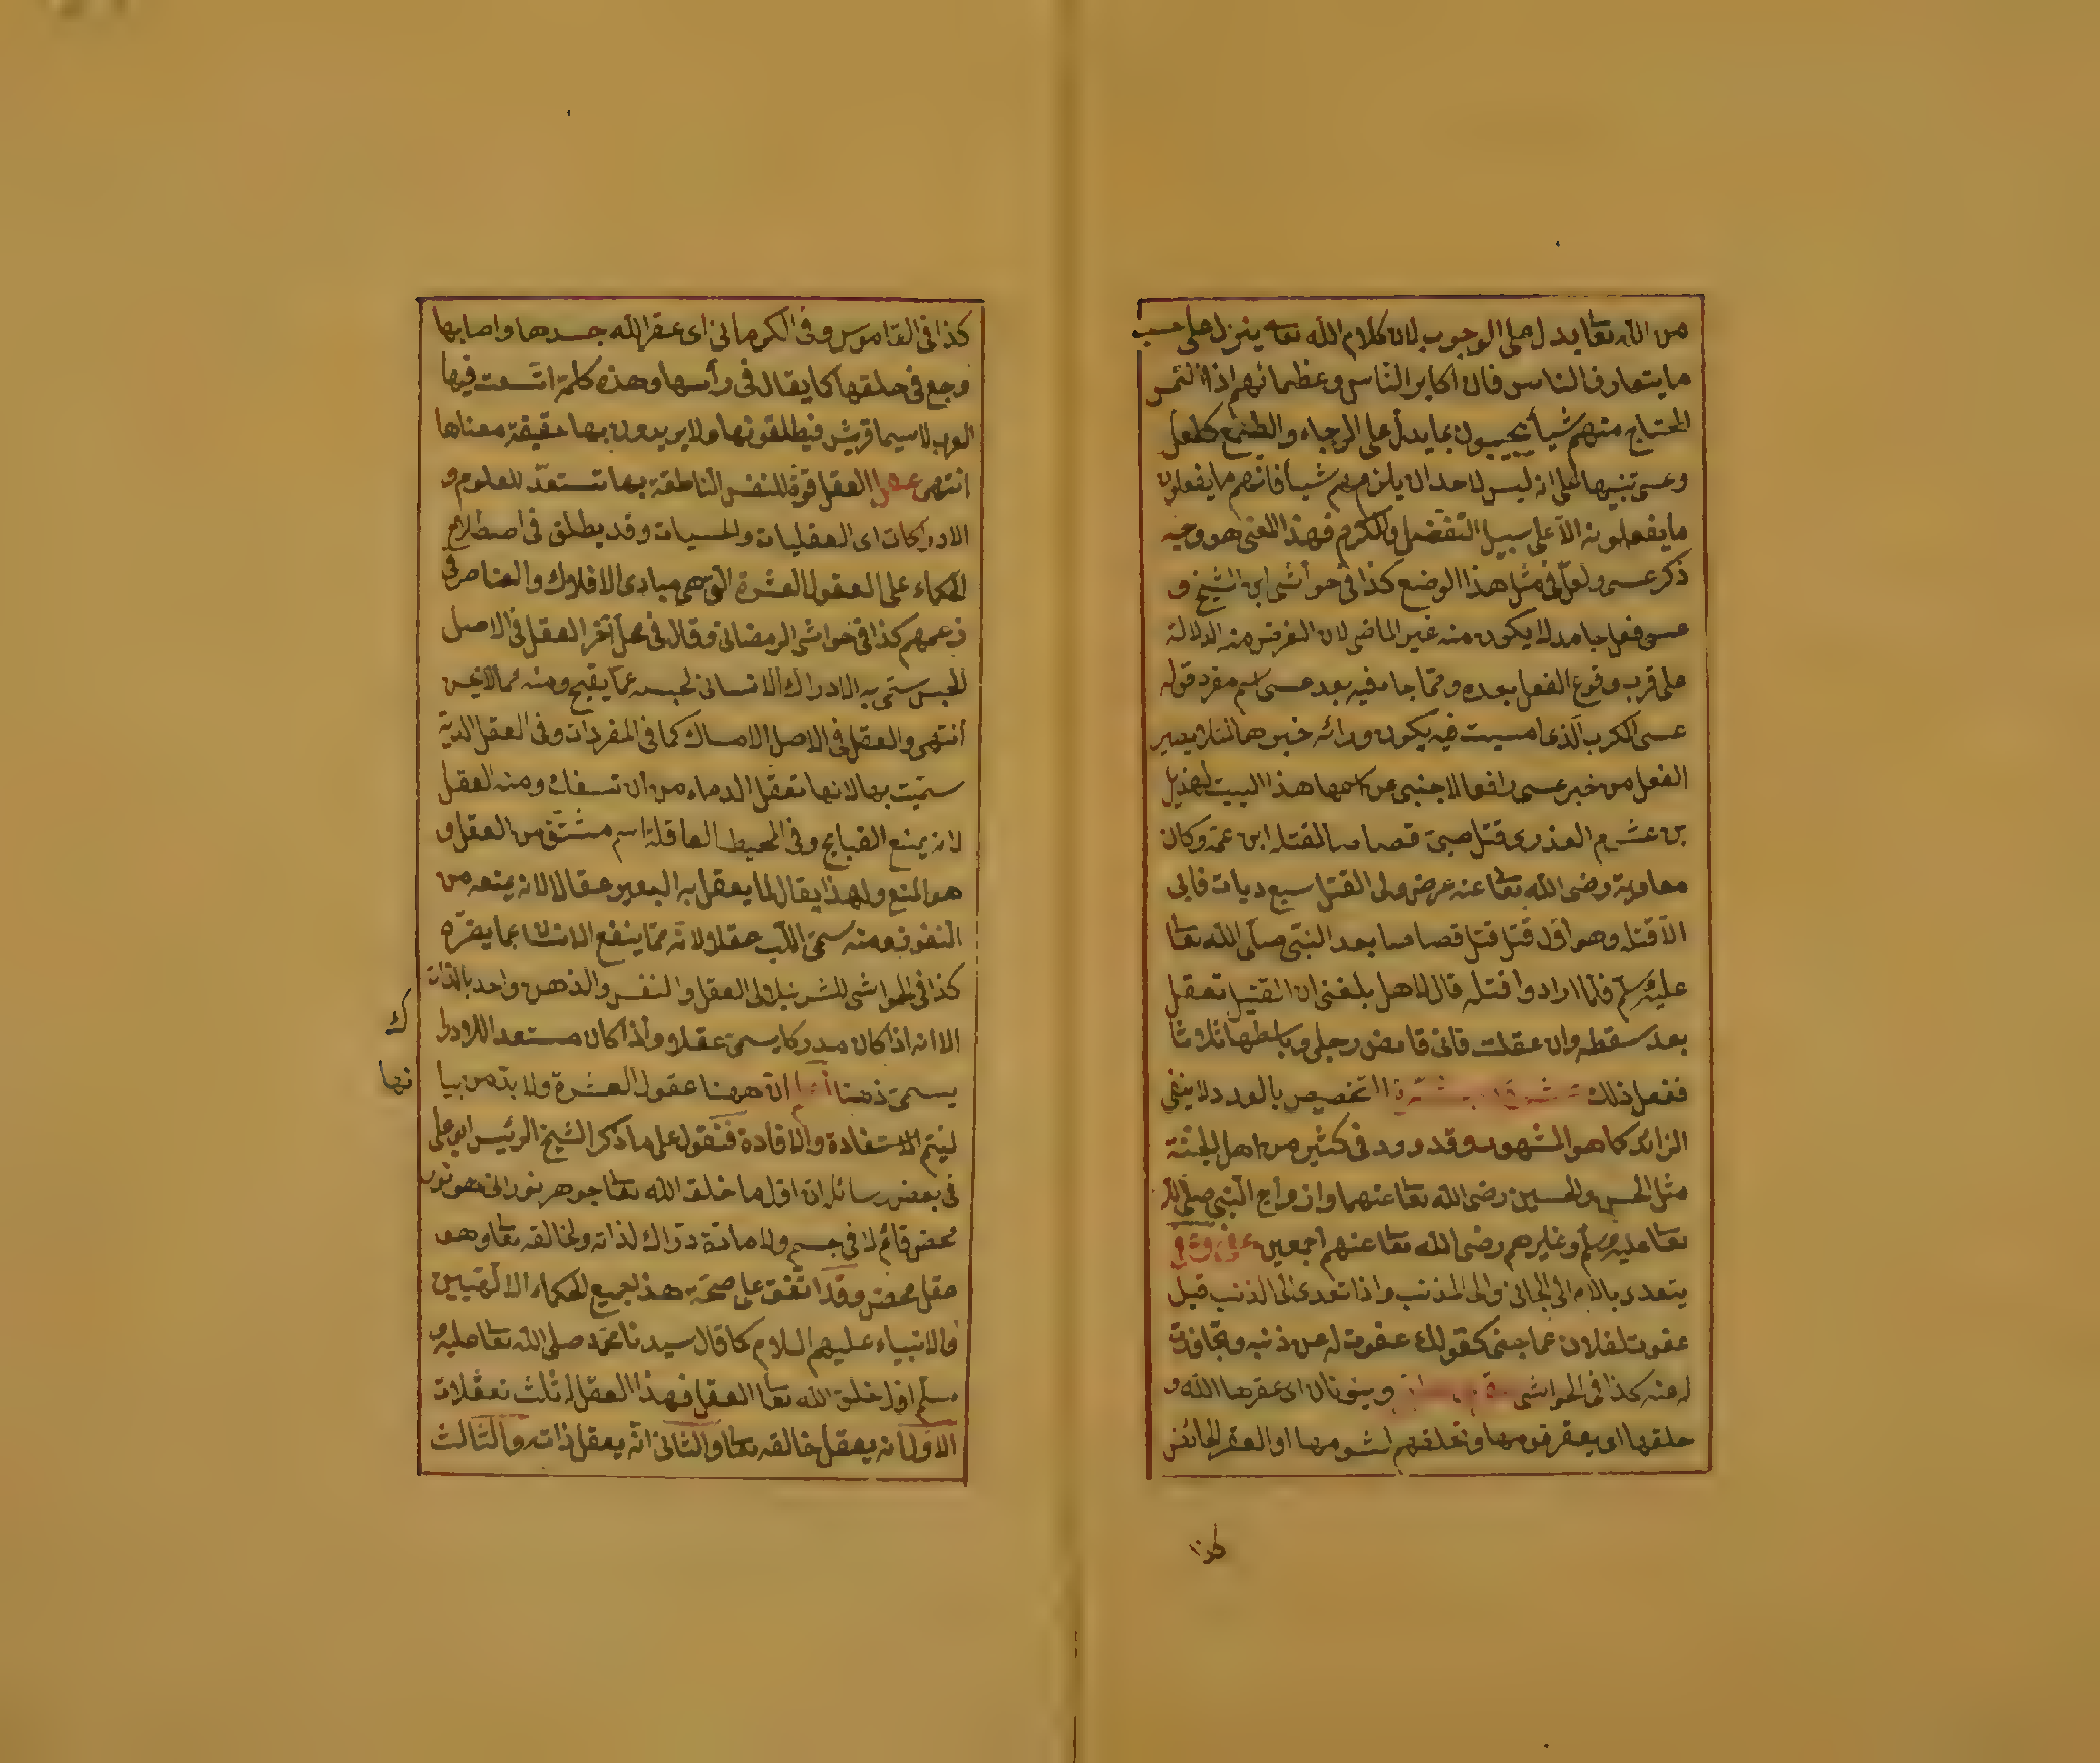 من الله تعا يدل على الوجوب لان كلام الله تعا ينزل على حسب
ما يتعارف الناس فان اكابر الناس وعظمائهم اذا التمس
المحتاج منهم شيأ يجيبون بما يدل على الرجاء والطمع كلعل
وعسى تنبيها على ان ليس لاحد ان يلزمهم شيأ فانهم ما يفعلون
ما يفعلونه الا على سبيل التفضل والكرم فهذا المعنى هو وجه
ذكر عسى ولعل فى مثل هذا الوضع كذا فى حواشى ابن الشيخ و
عسى فعل جامد لا يكون منه غير الماضى لان الغرض منه الدلالة
على قرب وقوع الفعل بعده ومما جاء فيه بعد عسى اسم مفرد قوله
عسى الكرب الذى امسيت فيه يكون ورائه خبرها لئلا يصير
الفعل من خبر عسى رافعا لاجنبى عن اسمها هذا البيت لهذيل
بن عشرم العذرى قتل صبى قصاصا لقتله ابن عمه وكان
معاوية رضى الله تعا عنه عرض ولى القتل سبع ديات فابى
الا قتله وهو اول قتل قتل قصاصا بعد النبى صلى الله تعا
عليه وسلم فلما ارادوا قتله قال لاهل بلغنى ان القتيل تعقل
بعد سقطه وان عقلت فانى قابض رجلى وباسطها ثلاثا
ففعل ذلك التخصيص بالعدد لا ينفى
الزائد كما هو المشهور وقد ورد فى كثير من اهل الجنة
مثل الحسن والحسين رضى الله تعا عنهما وازواج النبى صلى الله
تعا عليه وسلم وغيرهم رضى الله تعا عنهم اجمعين
يتعدى باللام الى الجانى والى المذنب واذا تعدى الى الذنب قيل
عفوت لفلان عما جنى كقولك عفوت له عن ذنبه وتجاوزت
له عنه كذا فى الحواشى وينونان اى عقرها الله و
حلقها اى يعقر قومها وتحلقهم لشومها او العقر الحائض
كذا
كذا فى القاموس وفى الكرمانى اى عقر الله جسدها واصابها
وجع فى حلقها كما يقال فى رأسها وهذه كلمة اتسعت فيها
العرب لا سيما قريش فيطلقونها ولا يريدون بها حقيقة معناها
انتهى العقل قوة للنفس الناطقة بها تستعد للعلوم و
الادركات اى العقليات والحسيات وقد يطلق فى اصطلاح
الحكماء على العقول العشرة التى هى مبادى الافلاك والعناصر فى
زعمهم كذا فى حواشى الرمضانى وقال فى محل آخر العقل فى الاصل
للحبس سمى به الادراك الانسانى لحبسه عما يقبح ومنه مما لا يحسن
انتهى والعقل فى الاصل الامساك كما فى المفردات وفى العقل الدية
سميت بها لانها تعقل الدماء من ان تسفك ومنه العقل
لانه يمنع القبايح وفى المحيط العاقلة اسم مشتق من العقل و
هو المنع ولهذا يقال لما يعقل به البعير عقالا لانه يمنعه من
النفور ومنه سمى اللب عقلا لانه مما ينفع الانسان بما يضره
كذا فى الحواشى للشرنبلالى العقل والنفس والذهن واحد بالذات
الا انه اذا كان مدركا يسمى عقلا واذا كان مستعد اللادرا
ك
يسمى ذهنا ان ههنا عقول العشرة ولا بد من بيا
نها
ليتم الاستفادة والافادة فنقول على ما ذكر الشيخ الرئيس ابو على
فى بعض رسائله ان اول ما خلق الله تعا جوهر نورانى هو نور
محض قائم لا فى جسم ولا مادة دراك لذاته ولخالقه تعا وهو
عقل محض وقد اتفق على صحة هذا جميع الحكماء الالهيين
والانبياء عليهم السلام كما قال سيدنا محمد صلى الله تعا عليه و
سلم اول خلق الله تعا العقل فهذا العقل له ثلث تعقلات
الاول انه يعقل خالقه تعا والثانى انه يعقل ذاته والثالث